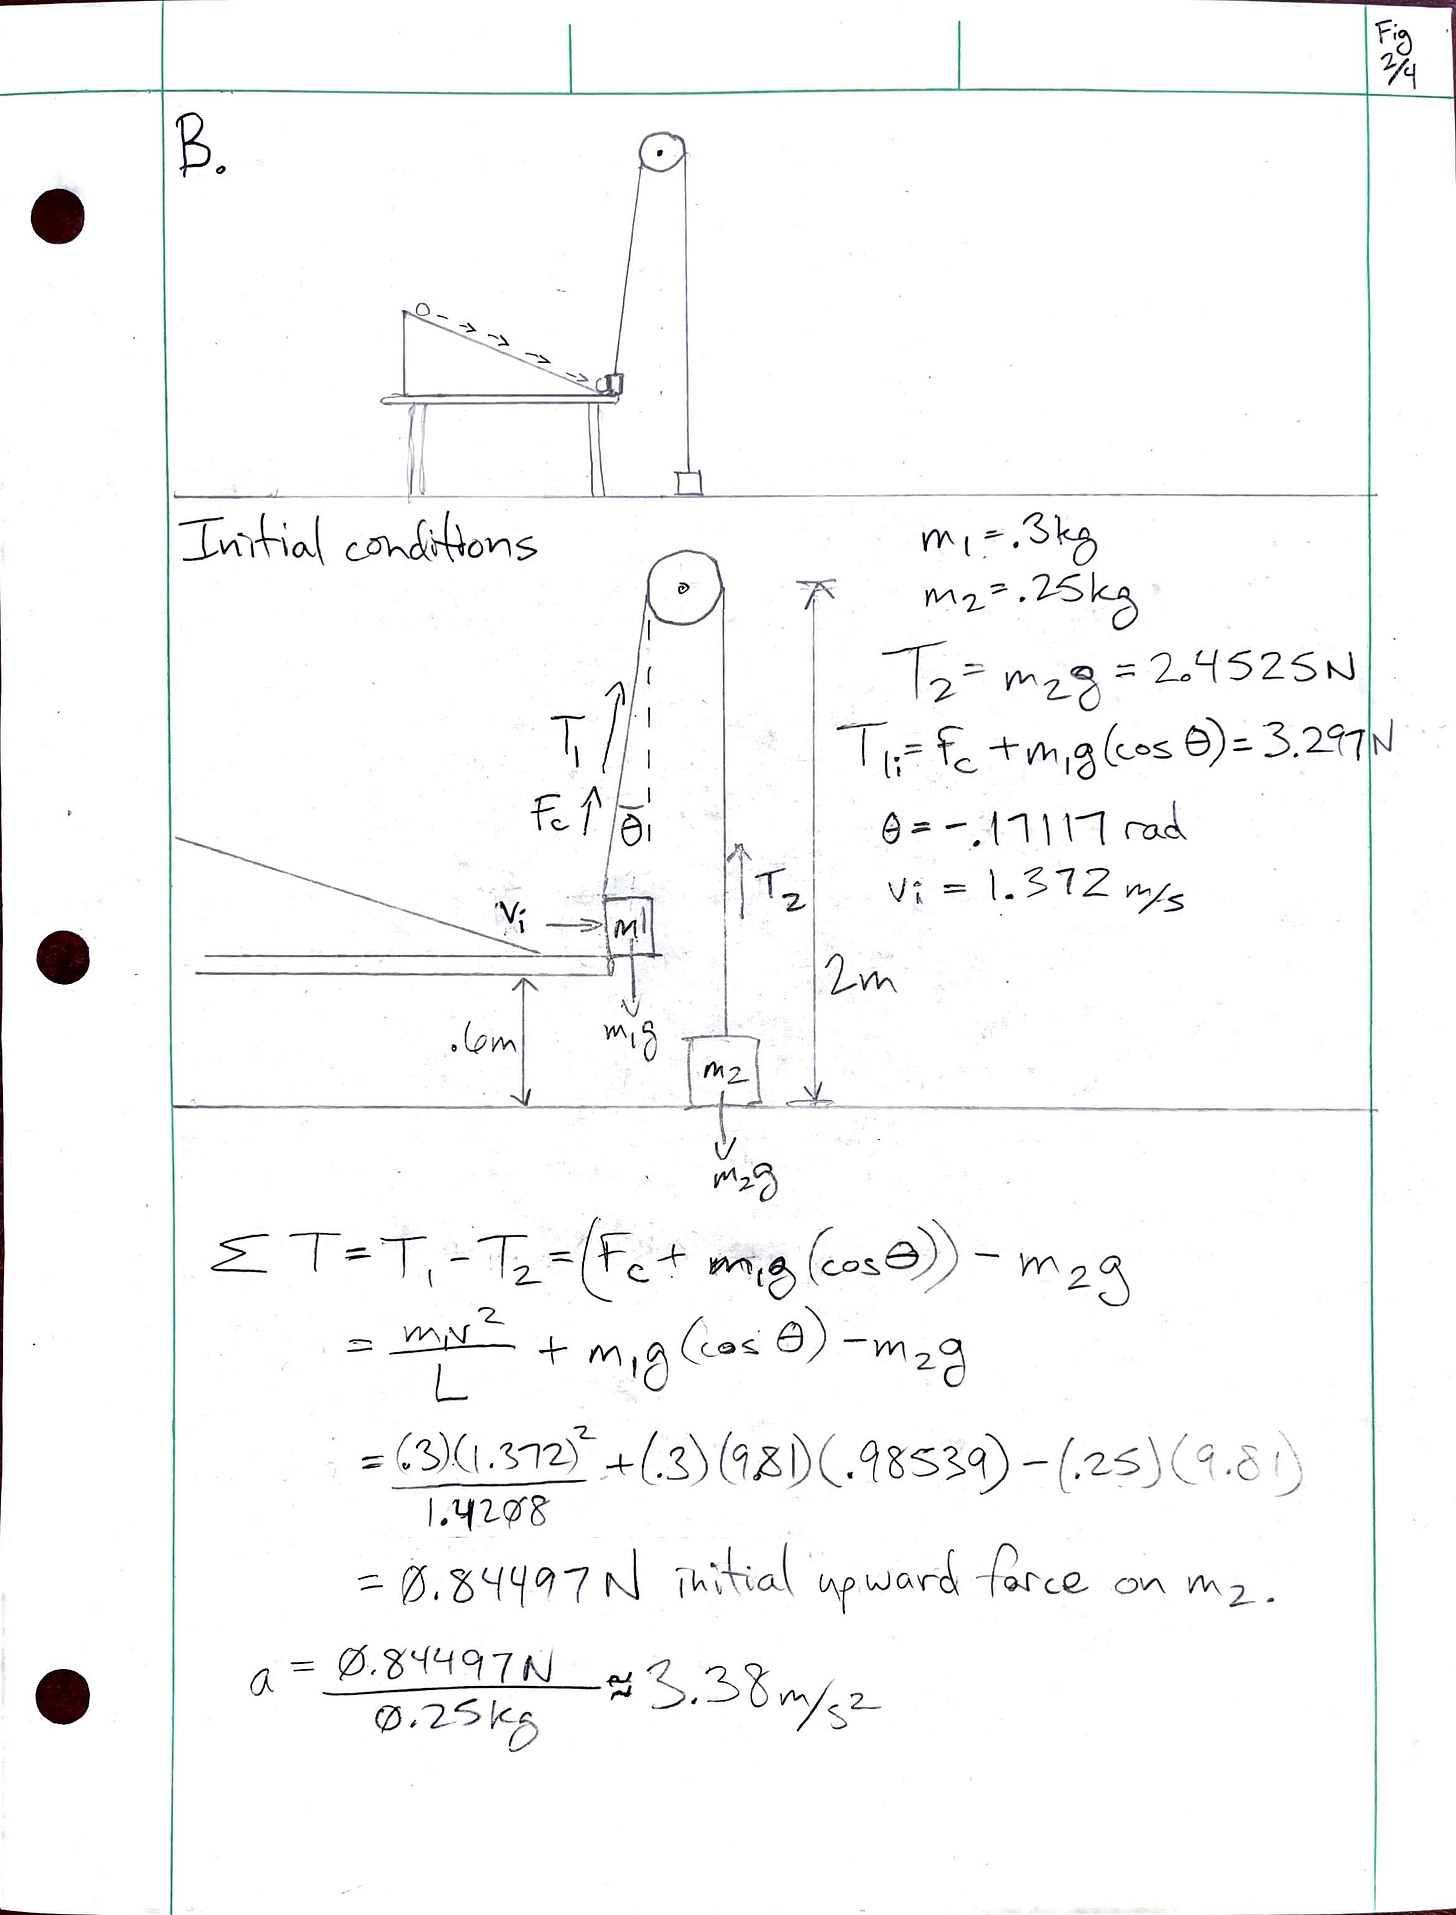 Fig
2/4
B.
Initial conditions
m₁ = .3kg
m₂ = .25kg
T₂ = m₂g = 2.4525N
T₁ᵢ = Fc + m₁g(cos θ) = 3.297N
θ = -.17117 rad
vᵢ = 1.372 m/s
T₁
Fc
θ
T₂
vᵢ
m1
2m
.6m
m₁g
m₂
m₂g
Σ T = T₁ - T₂ = (Fc + m₁g(cos θ)) - m₂g
= m₁v²/L + m₁g(cos θ) - m₂g
= (.3)(1.372)²/1.4208 + (.3)(9.81)(.98539) - (.25)(9.81)
= 0.84497N initial upward force on m₂.
a = 0.84497N/0.25kg ≈ 3.38 m/s²